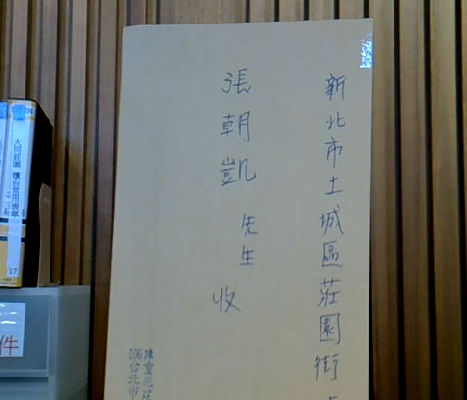 新北市土城區莊園街
張朝凱 先生 收
106台北市
17
件